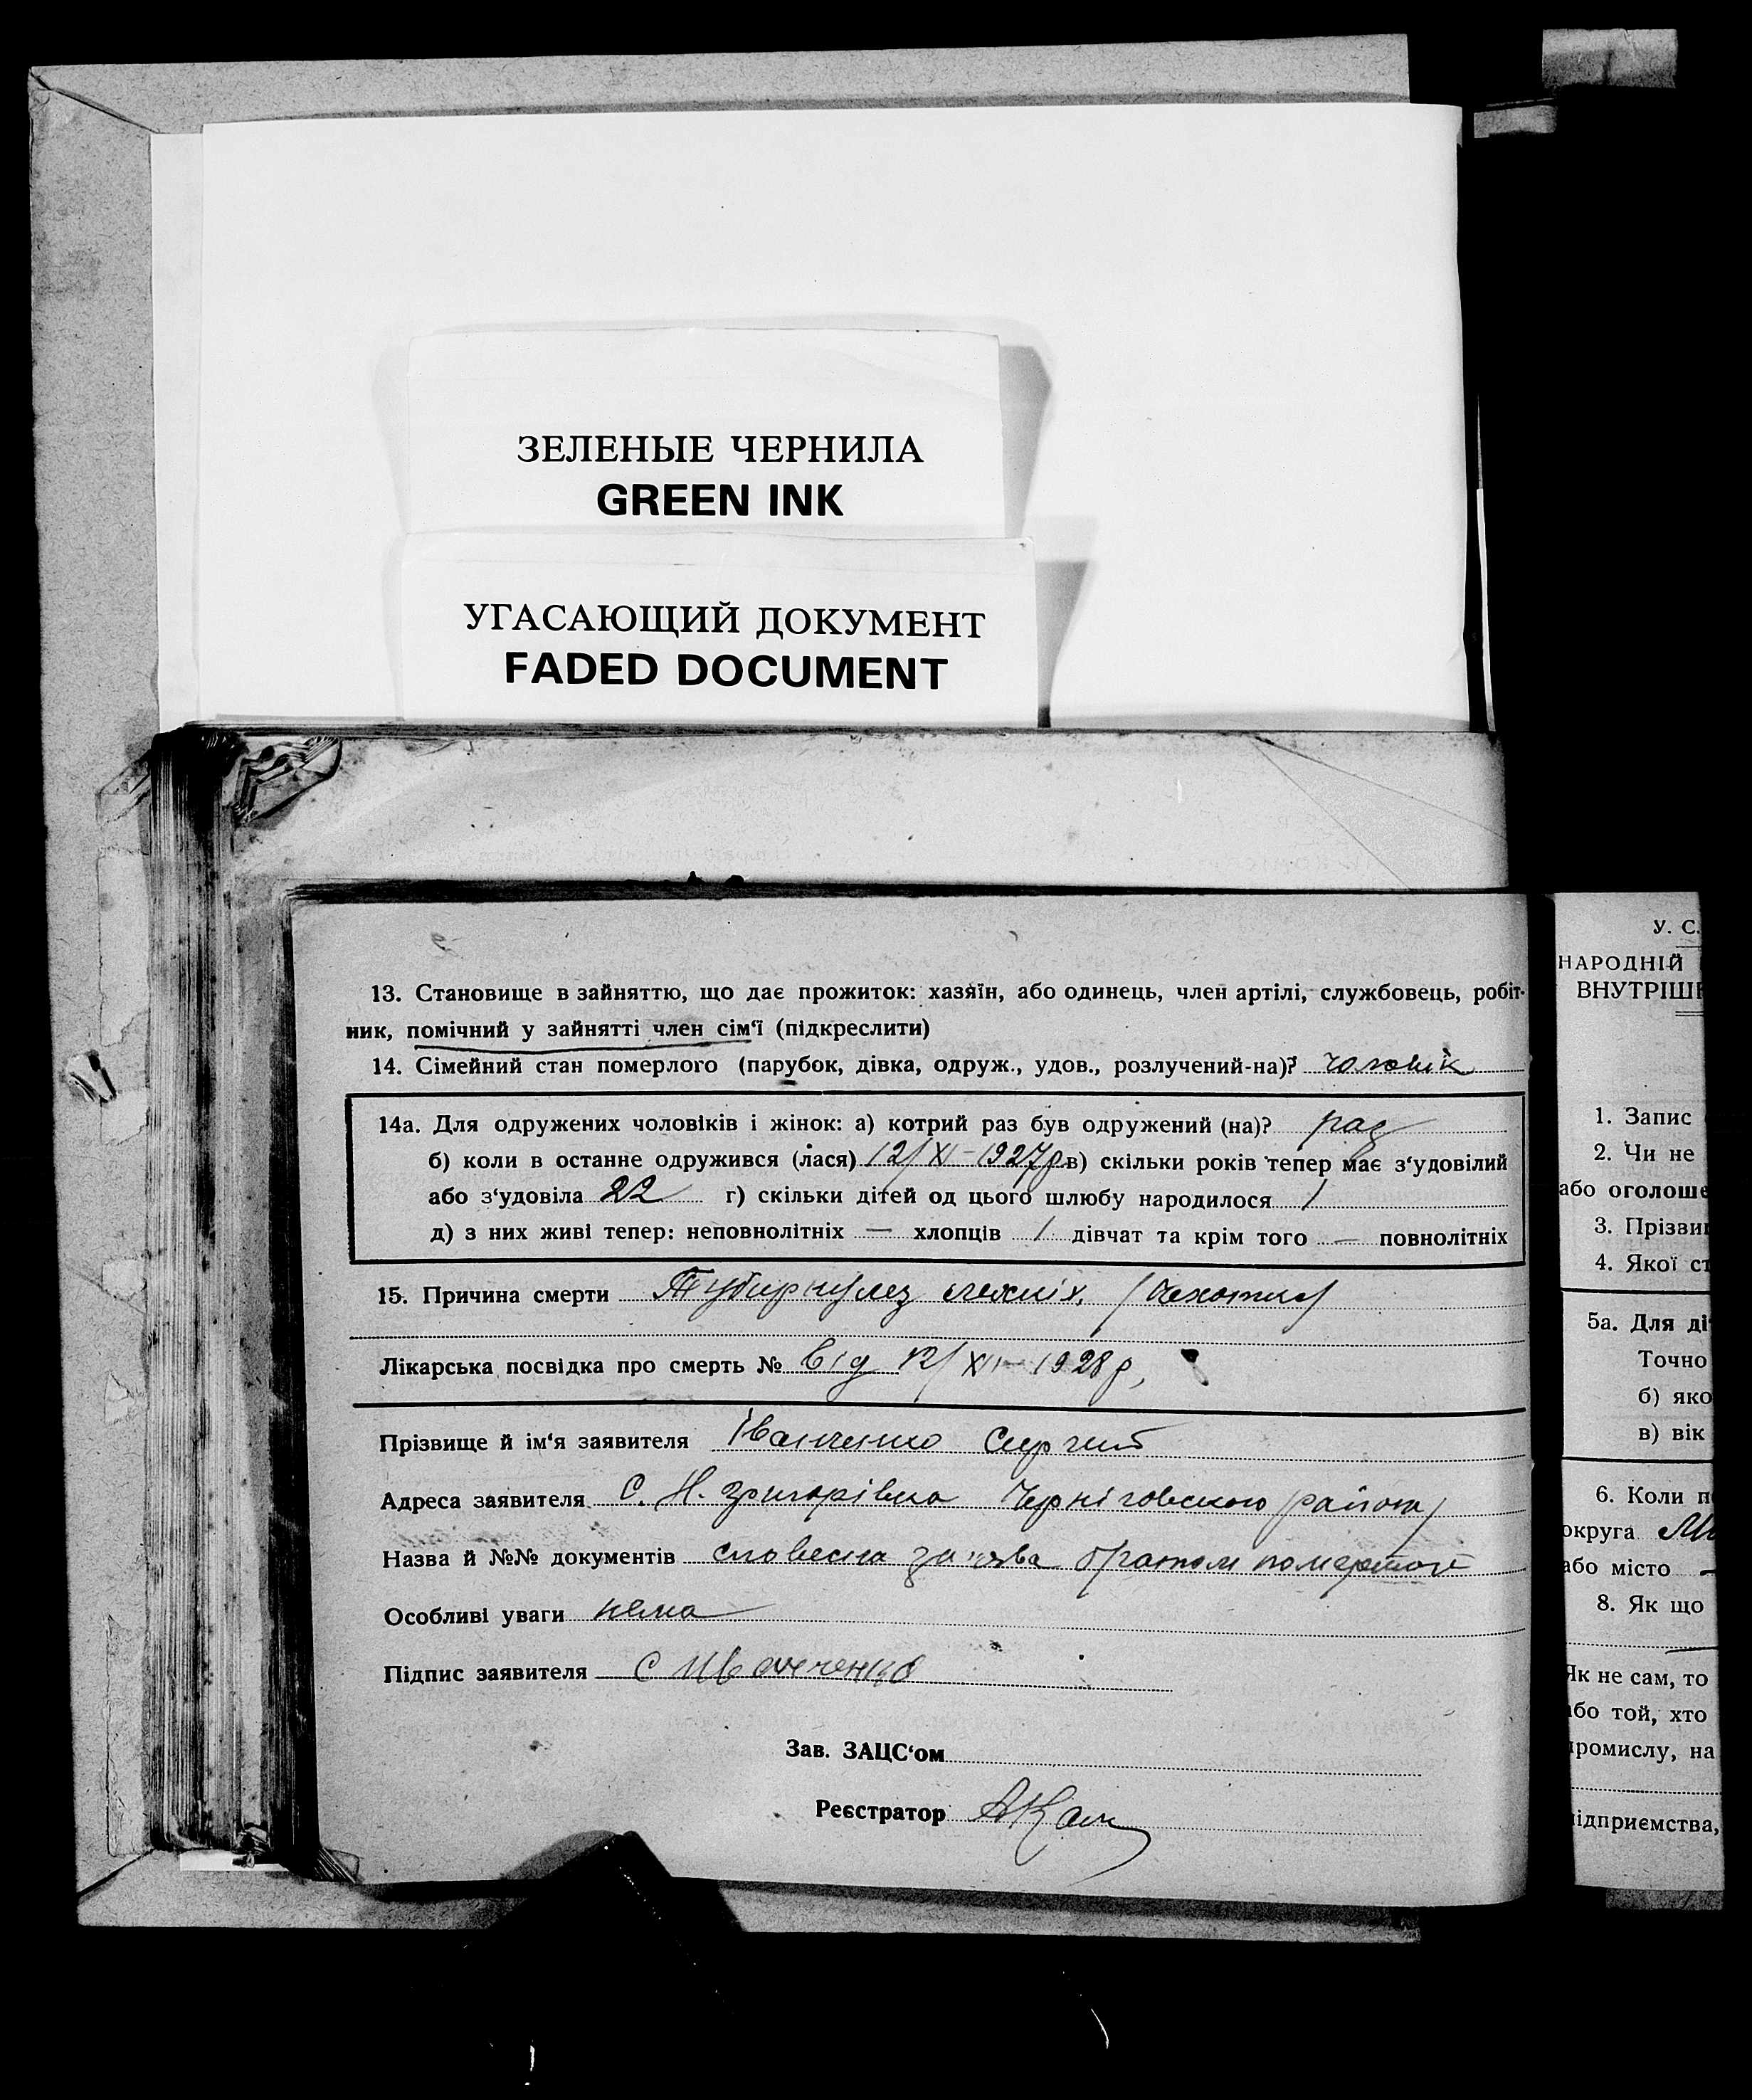 ЗЕЛЕНЫЕ ЧЕРНИЛА
GREEN INK
УГАСАЮЩИЙ ДОКУМЕНТ
FADED DOCUMENT
13. Становище в зайняттю, що дає прожиток: хазяїн, або одинець, член артілі, службовець, робіт-
ник, помічний у зайнятті член сім‘ї (підкреслити)
14. Сімейний стан померлого (парубок, дівка, одруж., удов., розлучений-на)?
14а. Для одружених чоловіків і жінок: а) котрий раз був одружений (на)? раз
б) коли в останне одружився (лася) 12/XI-1927р в) скільки років тепер має з‘удовілий
або з‘удовіла 22 г) скільки дітей од цього шлюбу народилося 1
д) з них живі тепер: неповнолітніх — хлопців 1 дівчат та крім того — повнолітніх
15. Причина смерти Тубиркулез легких (чахотка)
Лікарська посвідка про смерть № від 12/XII-1928р,
Прізвище й ім‘я заявителя Іванченко Сиргий
Адреса заявителя С. Н. Григорівка Черніговського району
Назва й №№ документів словесна заява братом
Особливі уваги нема
Підпис заявителя С Иванченко
Зав. ЗАЦС‘ом
Реєстратор
У. С.
НАРОДНІЙ
ВНУТРІШ
1. Запис
2. Чи не
або оголоше
3. Прізви
4. Якої ст
5а. Для ді
Точно
б) яко
в) вік
6. Коли п
округа
або місто —
8. Як що
Як не сам, то
або той, хто
промислу, на
підприємства,